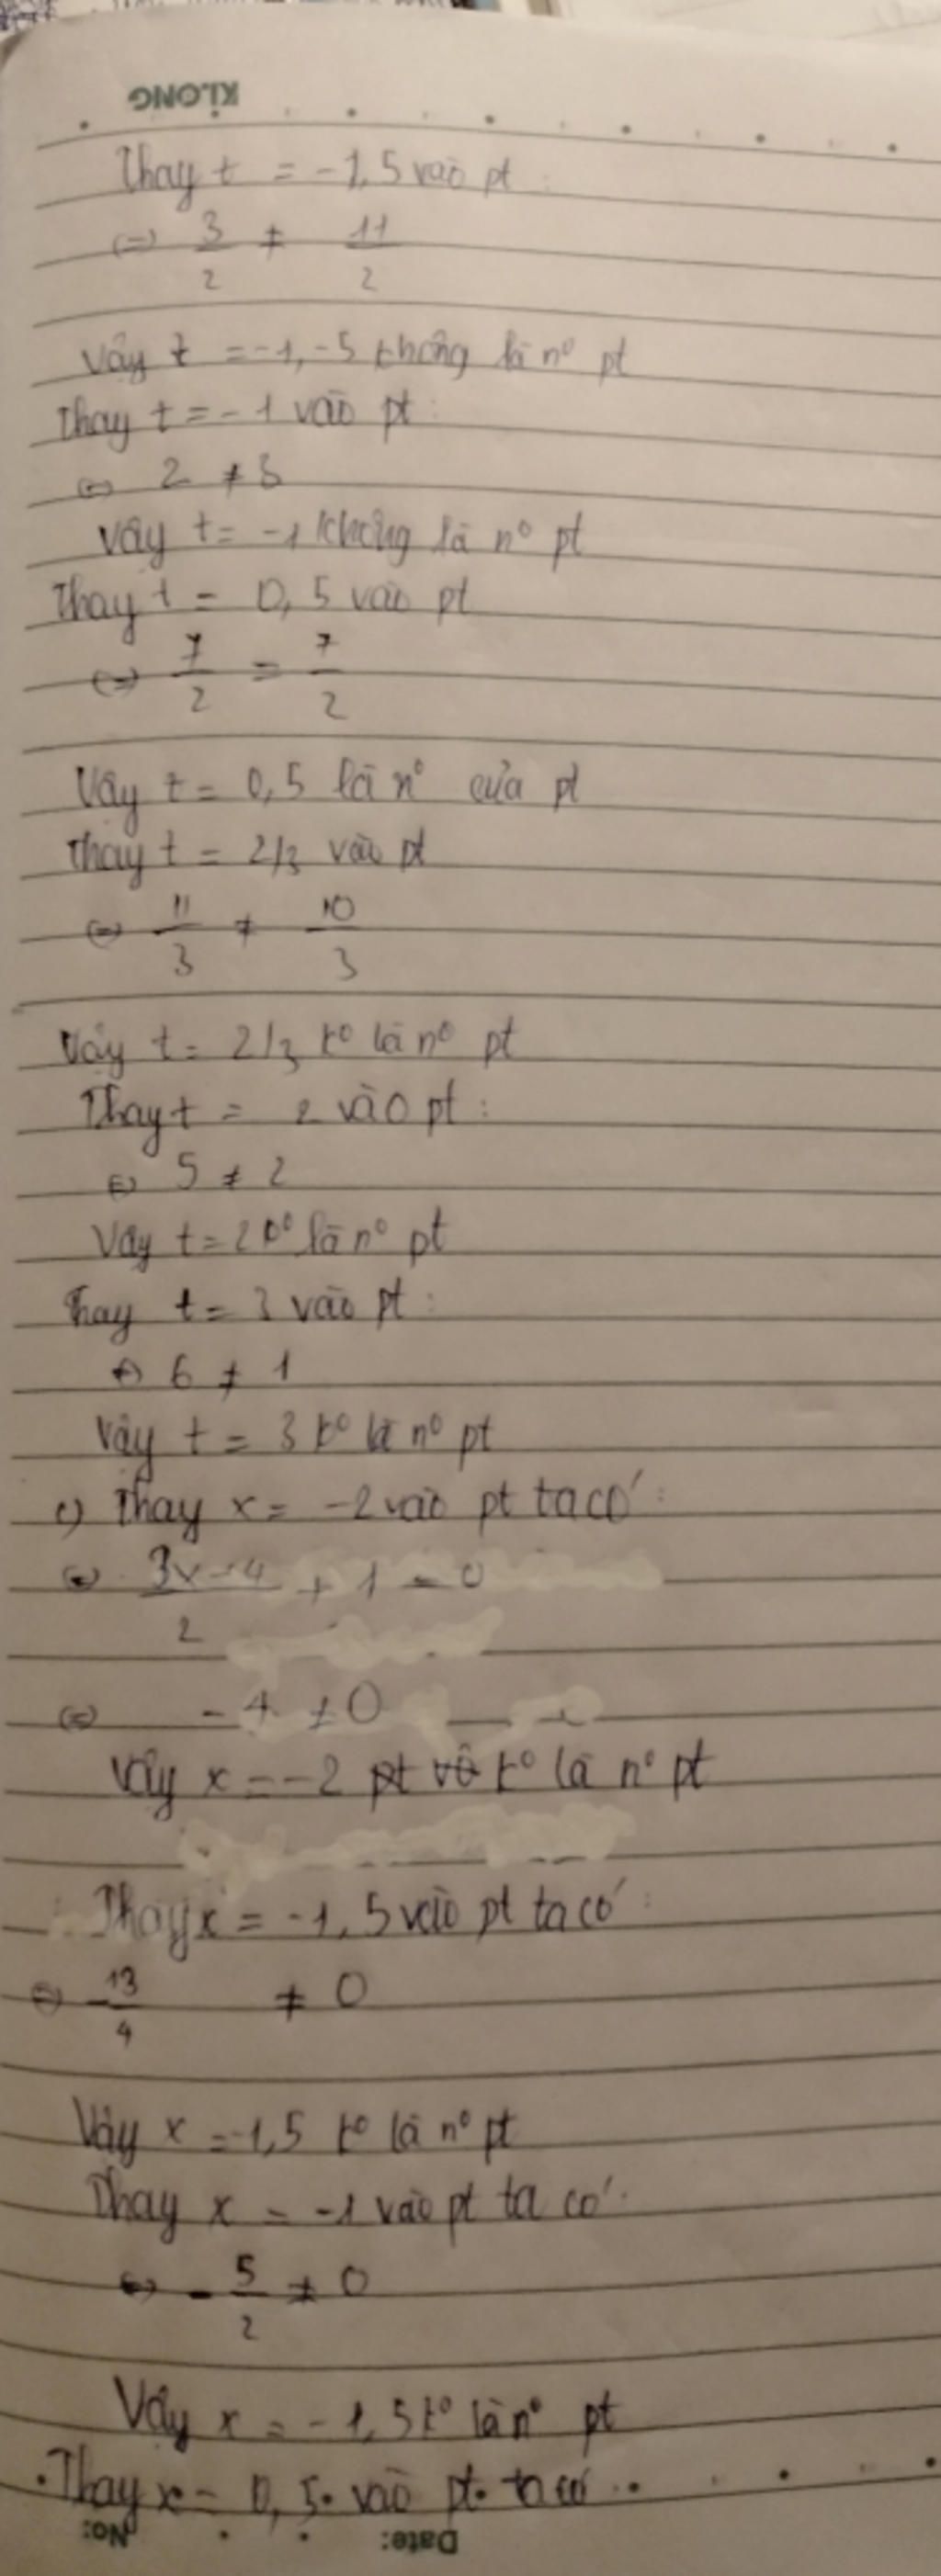 KLONG
Thay t = -1,5 vào pt :
⇔ 3/2 ≠ 11/2
Vậy t = -1,-5 không là n° pt
Thay t = -1 vào pt :
⇔ 2 ≠ 5
Vậy t = -1 không là n° pt
Thay t = 0,5 vào pt
⇔ 7/2 = 7/2
Vậy t = 0,5 là n° của pt
Thay t = 2/3 vào pt
⇔ 11/3 ≠ 10/3
Vậy t = 2/3 k° là n° pt
Thay t = 2 vào pt :
⇔ 5 ≠ 2
Vậy t = 2 k° là n° pt
Thay t = 3 vào pt :
⇔ 6 ≠ 1
Vậy t = 3 k° là n° pt
c) Thay x = -2 vào pt ta có :
⇔ (3x-4)/2 + 1 = 0
⇔ -4 ≠ 0
Vậy x = -2 k° là n° pt
Thay x = -1,5 vào pt ta có :
⇔ -13/4 ≠ 0
Vậy x = -1,5 k° là n° pt
Thay x = -1 vào pt ta có .
⇔ -5/2 ≠ 0
Vậy x = -1,5 k° là n° pt
Thay x = 0,5 vào pt ta có
No: Date: